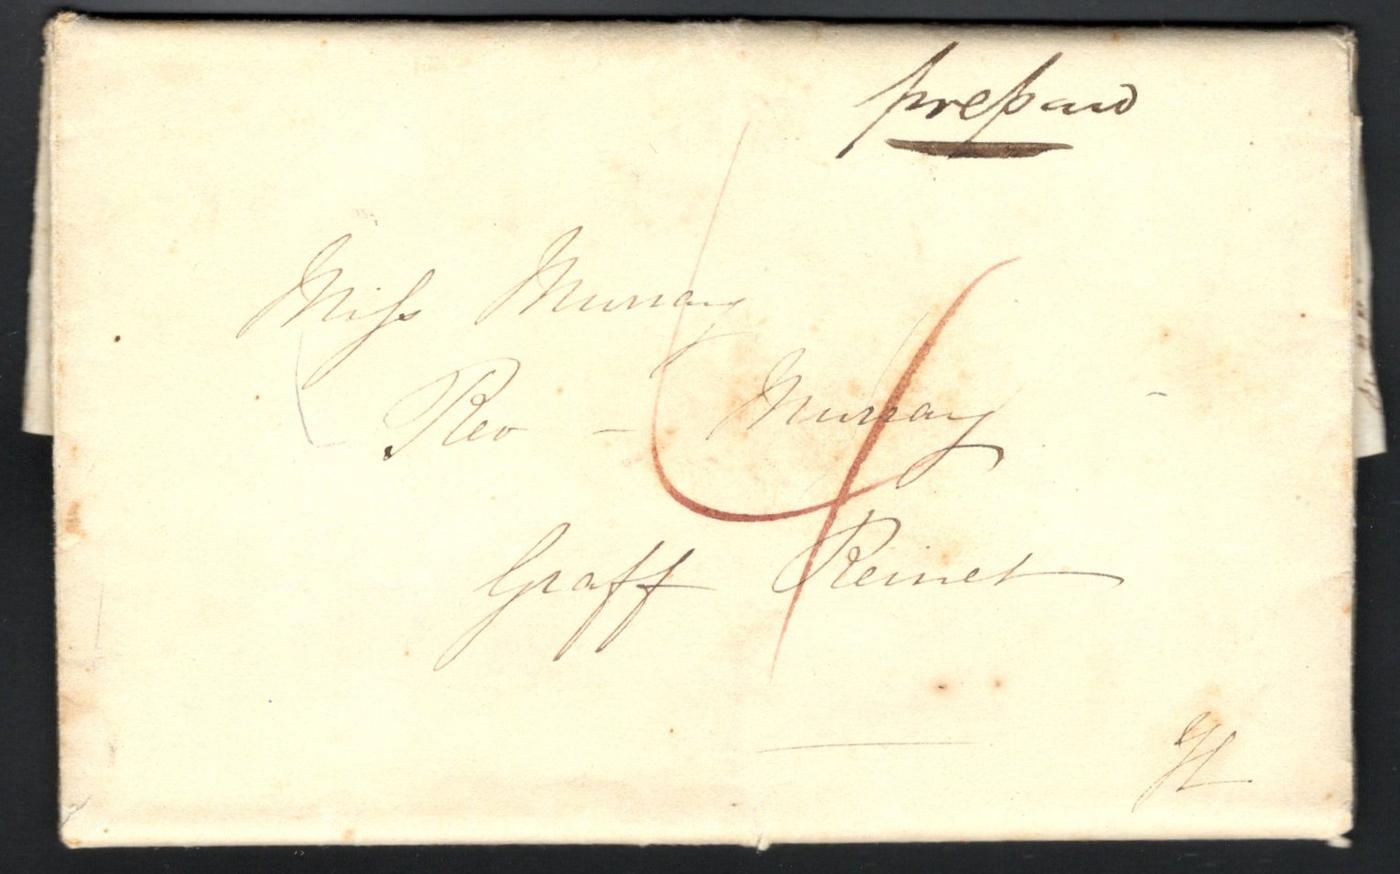 prepaid
Miss Murray
Rev - Murray -
Graff Reinet
4